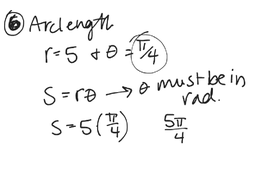 ⑥ Arc length
r=5 & θ = π/4
S=rθ → θ must be in rad.
S=5(π/4) 5π/4